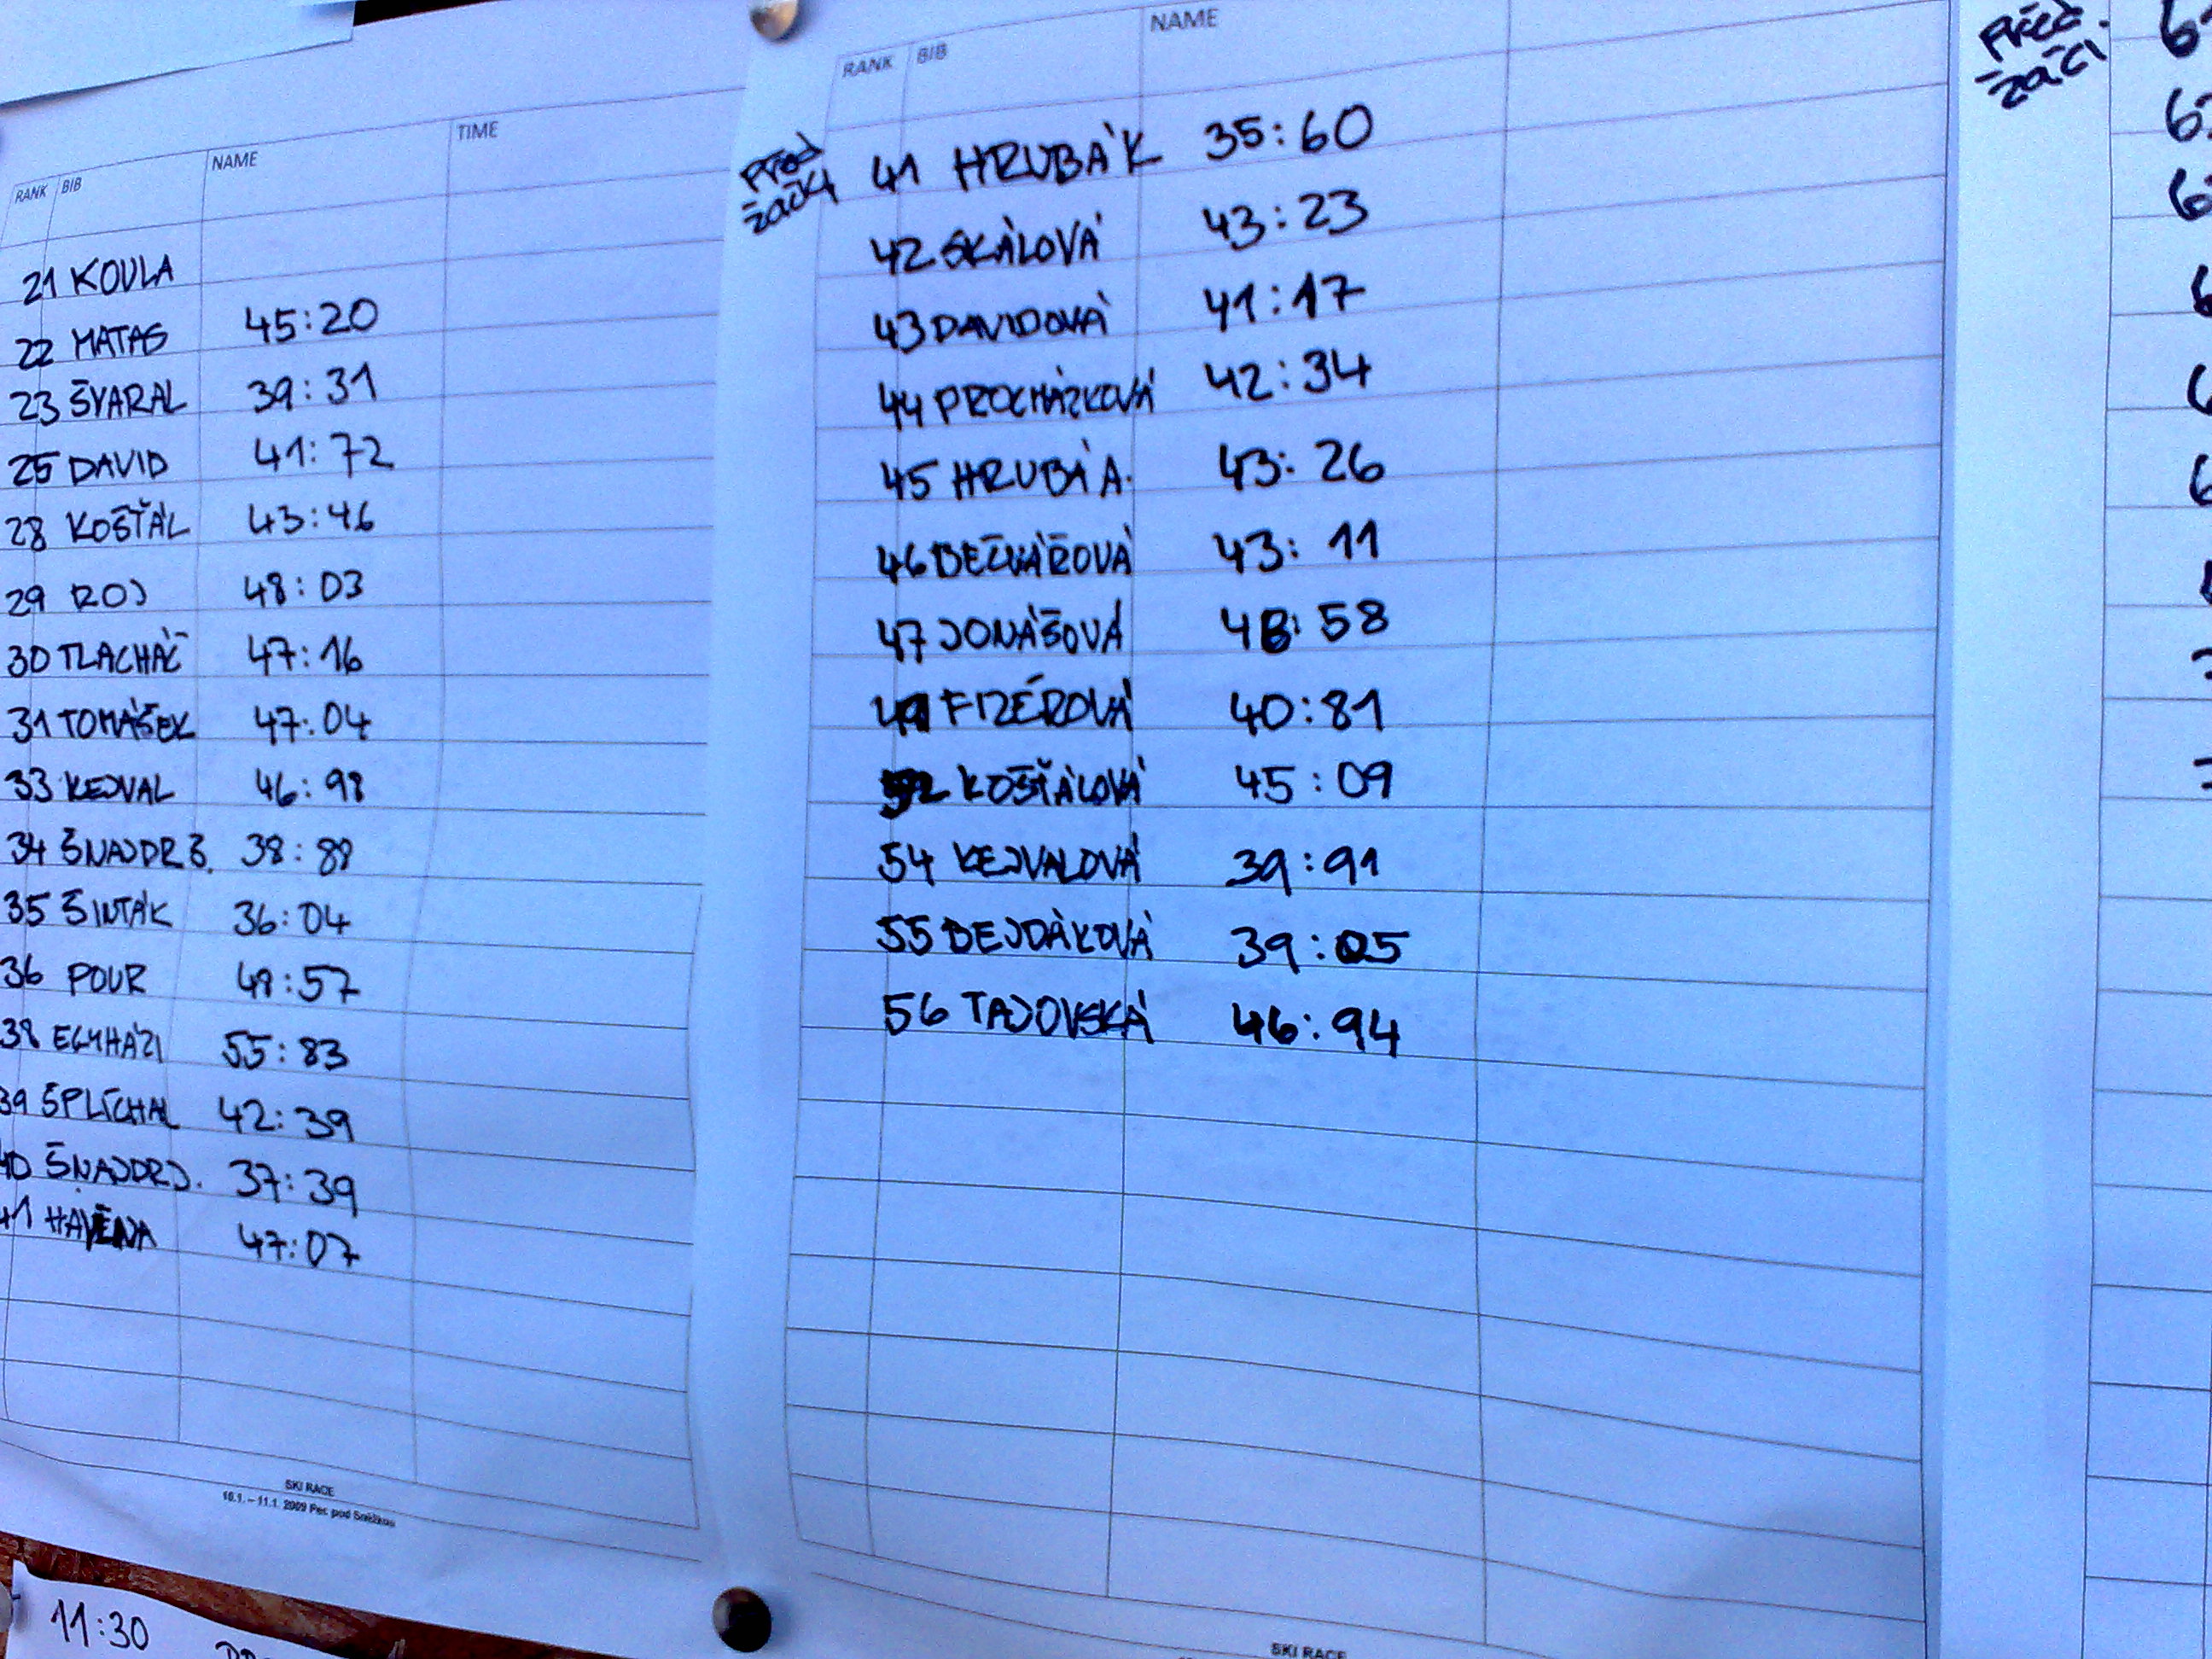 RANK BIB NAME TIME
21 KOULA
22 MATAS 45:20
23 ŠVARAL 39:31
25 DAVID 41:72
28 KOŠŤÁL 43:46
29 ROJ 48:03
30 TLACHÁČ 47:16
31 TOMÁŠEK 47:04
33 KEJVAL 46:98
34 ŠNAJDR Š. 38:89
35 ŠINTÁK 36:04
36 POUR 49:57
38 EGYHÁZI 55:83
39 ŠPLÍCHAL 42:39
40 ŠNAJDR J. 37:39
41 47:07
SKI RACE
10.1. – 11.1. 2009 Pec pod Sněžkou
11:30
RANK BIB NAME
Před
žačky
41 HRUBÁ K 35:60
42 SKÁLOVÁ 43:23
43 DAVIDOVÁ 41:17
44 PROCHÁZKOVÁ 42:34
45 HRUBÁ A. 43:26
46 BEČVÁŘOVÁ 43:11
47 JONÁŠOVÁ 58
FIZÉROVÁ 40:81
KOŠŤÁLOVÁ 45:09
54 KEJVALOVÁ 39:91
55 BEJDÁKOVÁ 39:05
56 TAJOVSKÁ 46:94
SKI RACE
Před.
žáci